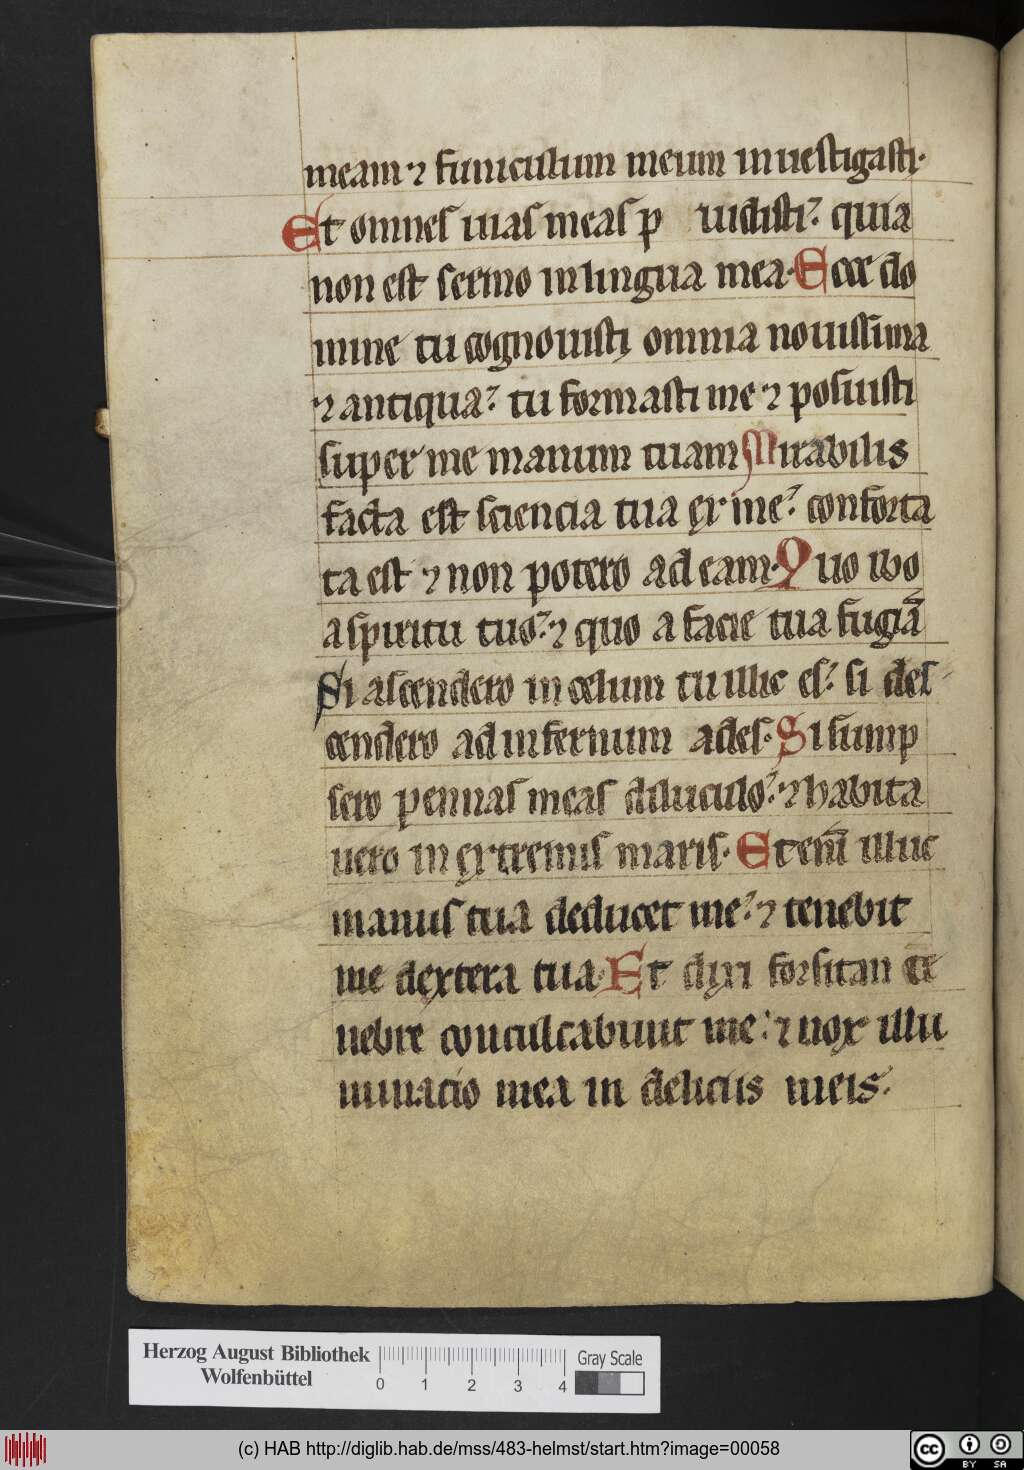 meam ⁊ funiculum meum inuestigasti.
Et omnes uias meas p uidisti? quia
non est sermo in lingua mea. Ecce do
mine tu cognouisti omnia nouissima
⁊ antiqua? tu formasti me ⁊ posuisti
super me manum tuam Mirabilis
facta est sciencia tua ex me? conforta
ta est ⁊ non potero ad eam. Quo ibo
a spiritu tuo? ⁊ quo a facie tua fugiā
Si ascendero in celum tu illic es? si des
cendero ad infernum ades. Si sump
sero pennas meas diluculo? ⁊ habita
uero in extremis maris. Etenī illuc
manus tua deducet me? ⁊ tenebit
me dextera tua. Et dixi forsitan te
nebre conculcabunt me? ⁊ nox illu
minacio mea in deliciis meis.
Herzog August Bibliothek
Wolfenbüttel
0 1 2 3 4
Gray Scale
(c) HAB http://diglib.hab.de/mss/483-helmst/start.htm?image=00058
cc BY SA